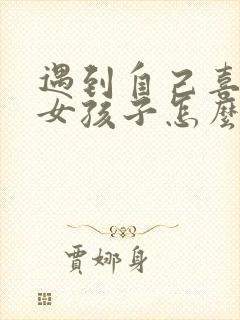 遇到自己喜
女孩子怎麼
賈娜身